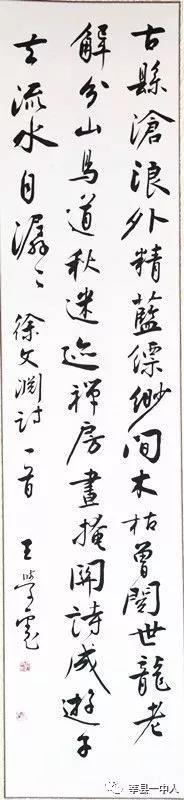 古縣滄浪外精藍縹缈间木枯曾閱世龍老
解分山鳥道秋迷迹禅房晝掩関詩成遊子
去流水自潺々 徐文淵诗一首 王學
莘县一中人